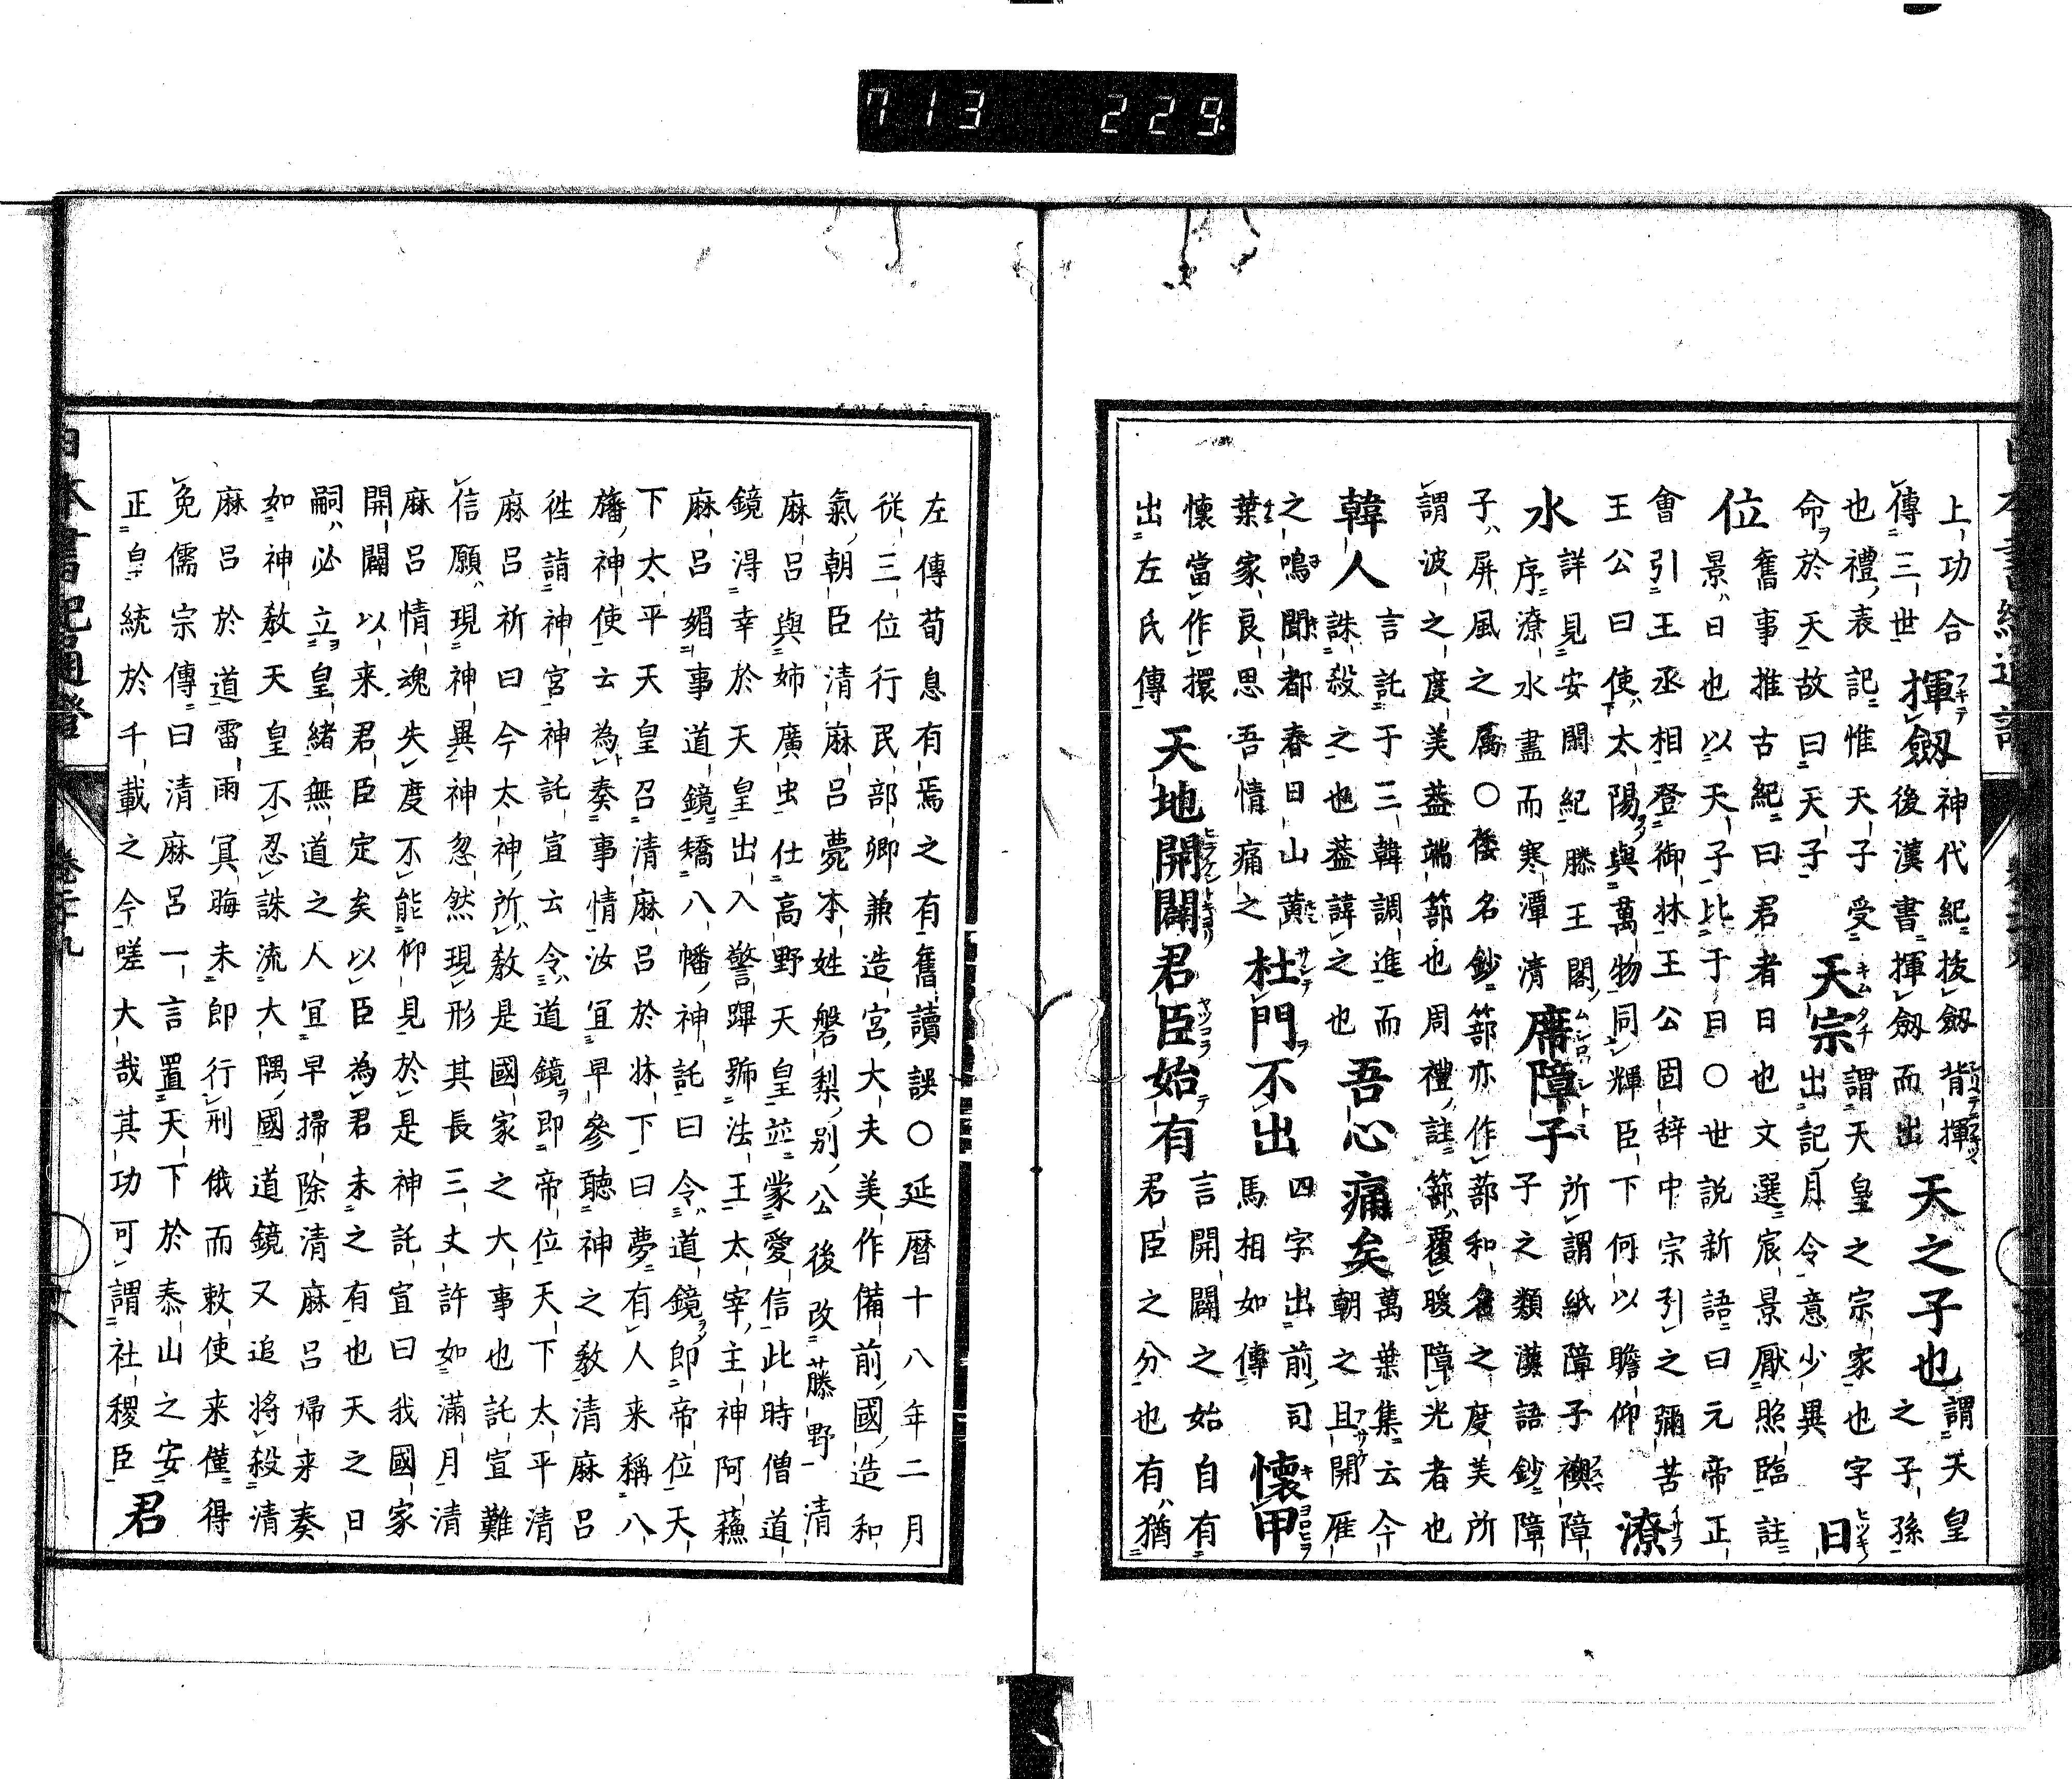 713 229
上功合
傳三世
揮劔
神代紀抜劔背揮
後漢書揮劔而出
天之子也
謂天皇
之子孫
也禮表記惟天子受
命於天故曰天子
天宗
謂天皇之宗家也字
出記月令意少異
日
位
舊事推古紀曰君者日也文選宸景厭照臨註
景日也以天子比于日〇世説新語曰元帝正
會引王丞相登御牀王公固辞中宗引之彌苦
王公曰使太陽與萬物同輝臣下何以瞻仰
潦
水
詳見安閑紀滕王閣
序潦水盡而寒潭清
席障子
所謂紙障子襖障
子之類漢語鈔障
子屏風之属〇倭名鈔蔀亦作蔀和名之度美所
謂波之度美葢端蔀也周禮註蔀覆暖障光者也
韓人
言託于三韓調進而
誅殺之也葢諱之也
吾心痛矣
萬葉集云今
朝之且開雁
之鳴聞都春日山黄
葉家良思吾情痛之
杜門不出
四字出前司
馬相如傳
懐甲
懐當作擐
出左氏傳
天地開闢君臣始有
言開闢之始自有
君臣之分也有猶
左傳荀息有焉之有舊讀誤〇延暦十八年二月
従三位行民部卿兼造宮大夫美作備前國造和
氣朝臣清麻呂薨本姓磐梨別公後改藤野清
麻呂與姉廣虫仕高野天皇並蒙愛信此時僧道
鏡淂幸於天皇出入警蹕號法王太宰主神阿蘓
麻呂媚事道鏡矯八幡神託曰令道鏡即帝位天
下太平天皇召清麻呂於牀下曰夢有人来稱八
旛神使云為奏事情汝宜早參聴神之教清麻呂
徃詣神宮神託宣云令道鏡即帝位天下太平清
麻呂祈曰今太神所教是國家之大事也託宣難
信願現神異神忽然現形其長三丈許如滿月清
麻呂情魂失度不能仰見於是神託宣曰我國家
開闢以来君臣定矣以臣為君未之有也天之日
嗣必立皇緒無道之人宜早掃除清麻呂婦来奏
如神教天皇不忍誅流大隅國道鏡又追将殺清
麻呂於道雷雨冥晦未即行刑俄而敕使来僅得
免儒宗傳曰清麻呂一言置天下於泰山之安
正皇統於千載之今嗟大哉其功可謂社稷臣
君
日本書紀通證